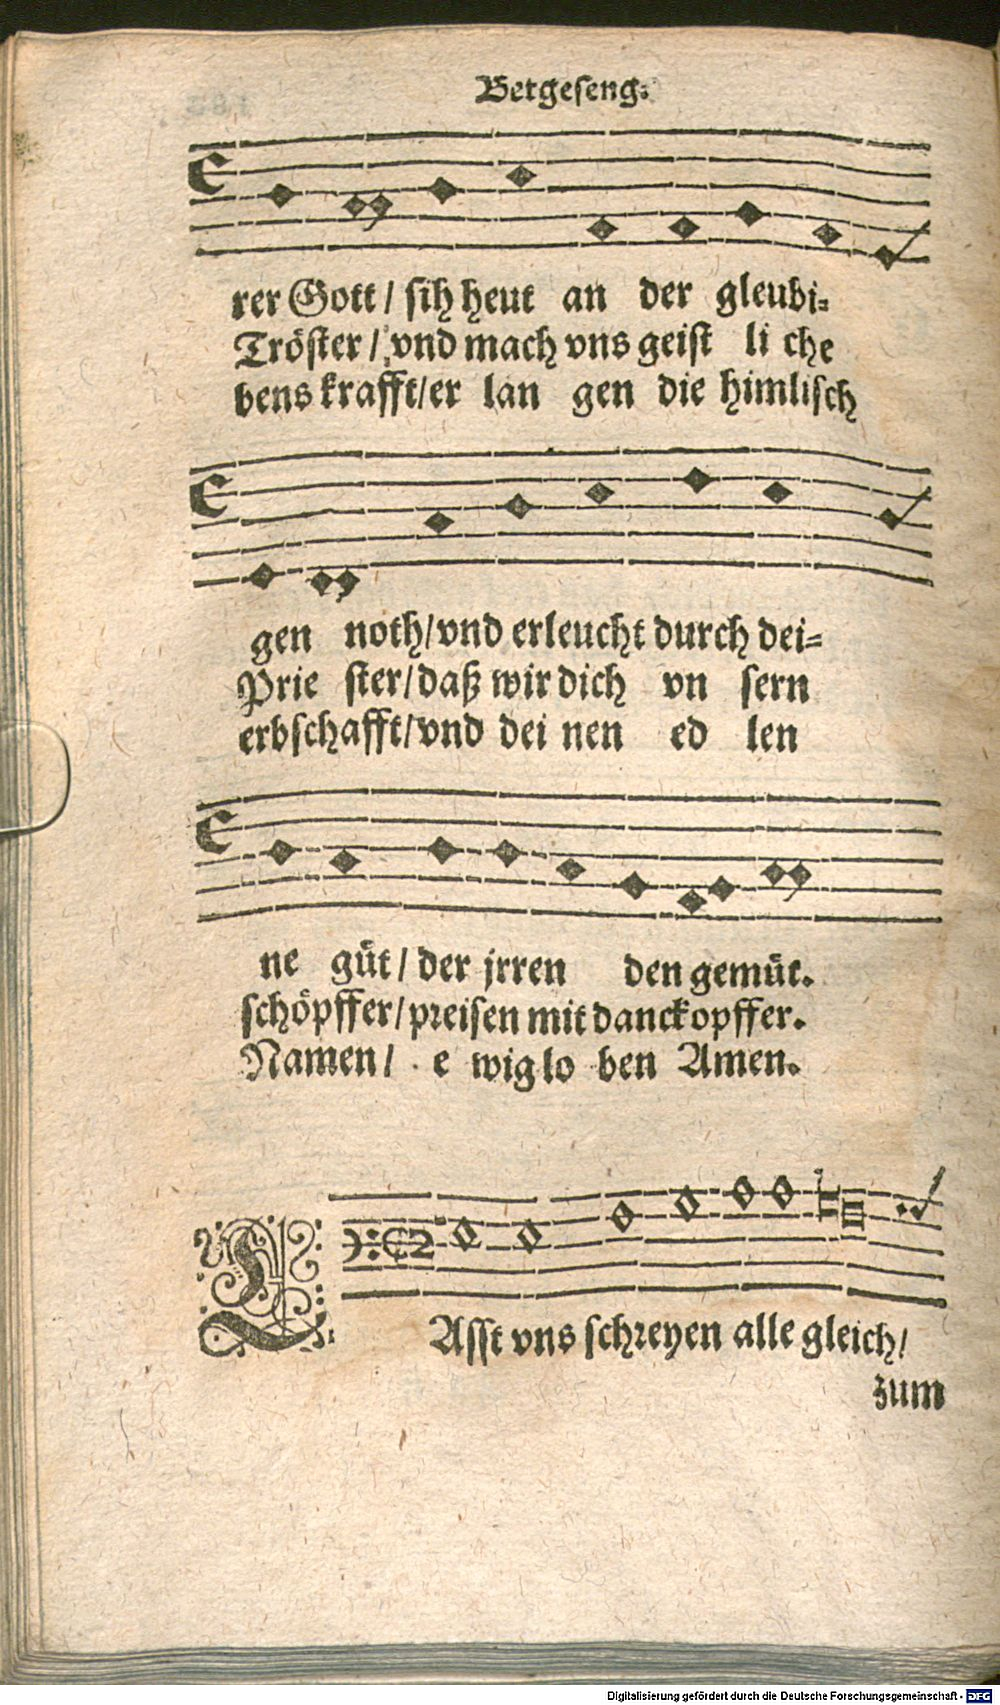 Betgeseng.
rer Gott / sih heut an der gleubi-
Tröster / vnd mach vns geist li che
bens krafft/er lan gen die himlisch
gen noth/vnd erleucht durch dei-
Prie ster/daß wir dich vn sern
erbschafft/vnd dei nen ed len
ne güt / der jrren den gemüt.
schöpffer/preisen mit danckopffer.
Namen / e wig lo ben Amen.
LAsst vns schreyen alle gleich/
zum
Digitalisierung gefördert durch die Deutsche Forschungsgemeinschaft - DFG